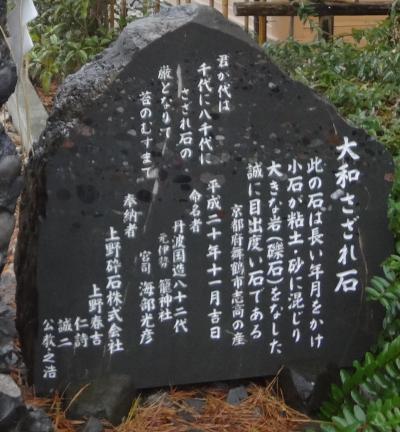 大和さざれ石
此の石は長い年月をかけ
小石が粘土・砂に混じり
大きな岩(礫石)をなした
誠に目出度い石である
京都府舞鶴市志高の産
平成二十年十一月吉日
命名者
丹波国造八十二代
元伊勢 籠神社
宮司 海部光彦
君が代は
千代に八千代に
さざれ石の
巌となりて
苔のむすまで
奉納者
上野砕石株式会社
上野春吉
仁詩
誠二
公教之浩